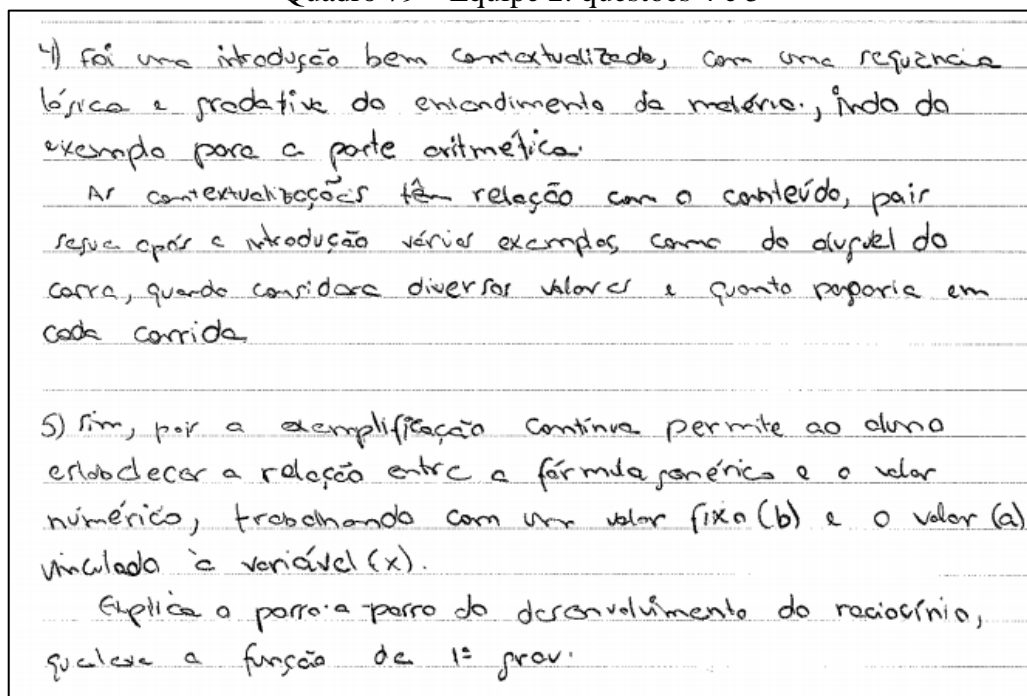 Quadro 79 – Equipe 2: questões 4 e 5
4) Foi uma introdução bem contextualizada, com uma sequência
lógica e gradativa do entendimento da matéria, indo do
exemplo para a parte aritmética.
As contextualizações têm relação com o conteúdo, pois
segue após a introdução vários exemplos, como do aluguel do
carro, quando considera diversos valores e quanto pagaria em
cada corrida
5) Sim, pois a exemplificação contínua permite ao aluno
estabelecer a relação entre a fórmula genérica e o valor
numérico, trabalhando com um valor fixo (b) e o valor (a)
vinculado à variável (x).
Explica o passo-a-passo do desenvolvimento do raciocínio,
a função de 1º grau.